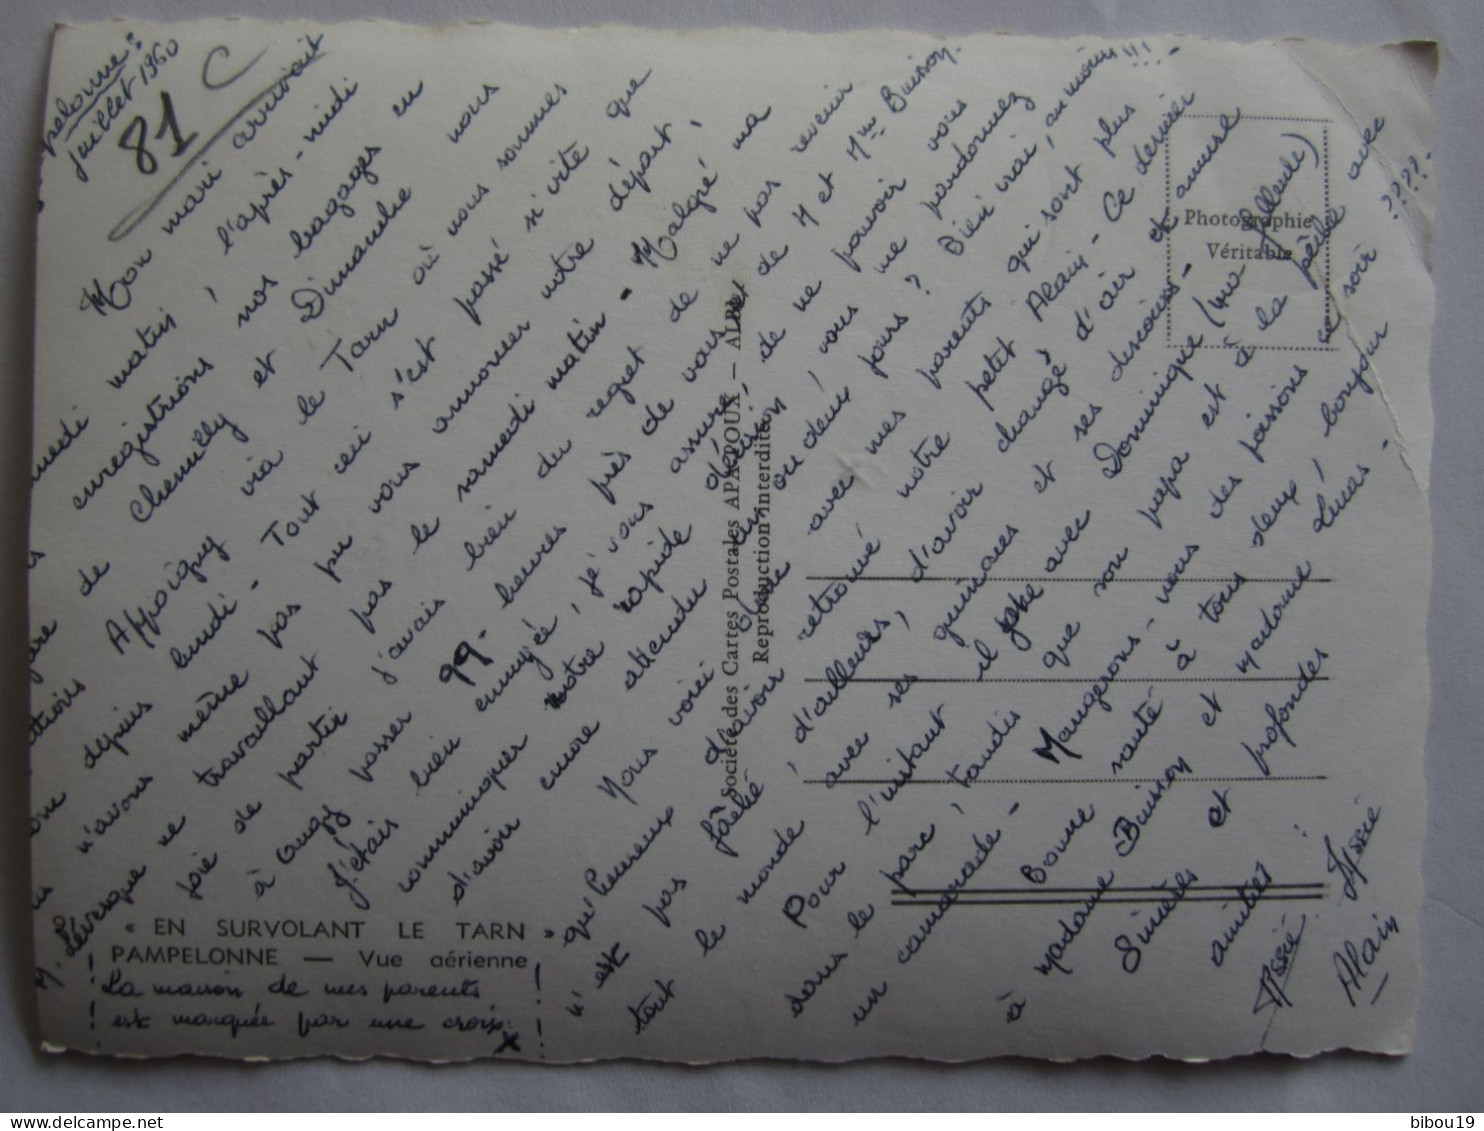 pelonne :
juillet 1960
81 C
Mon mari arrivait
medi matin, l'après-midi
enregistrions nos bagages en
gare de Chemilly et Dimanche nous
Appoigny via le Tarn où nous sommes
depuis lundi - Tout ceci s'est passé si vite que
n'avons même pas pu vous annoncer notre départ,
M. Lévesque ne travaillant pas le samedi matin - Malgré ma
joie de partir j'avais bien du regret de ne pas revenir
à Augy passer 99 heures près de vous et de M et Mme Buisson -
J'étais bien ennuyée, je vous assure, de ne pouvoir vous
communiquer notre rapide décision, vous me pardonnez
d'avoir encore attendu un ou deux jours ? Bien vrai, au moins !!!
Nous voici avec mes parents qui sont plus
qu'heureux d'avoir retrouvé notre petit Alain - Ce dernier
n'est pas fâché d'ailleurs, d'avoir changé d'air et amuse
tout le monde avec ses grimaces et ses discours -
Pour l'instant il joue avec Dominique (ma filleule)
dans le parc, tandis que son papa est à la pêche avec
un camarade - Mangerons-nous des poissons ce soir ????
Bonne santé à tous deux, bonjour
à Madame Buisson et Madame Lucas -
Sincères et profondes
amitiés :
Alain
« EN SURVOLANT LE TARN »
PAMPELONNE — Vue aérienne
La maison de mes parents
est marquée par une croix : X
Société des Cartes Postales APA-POUX — ALBI
Reproduction interdite
Photographie
Véritable